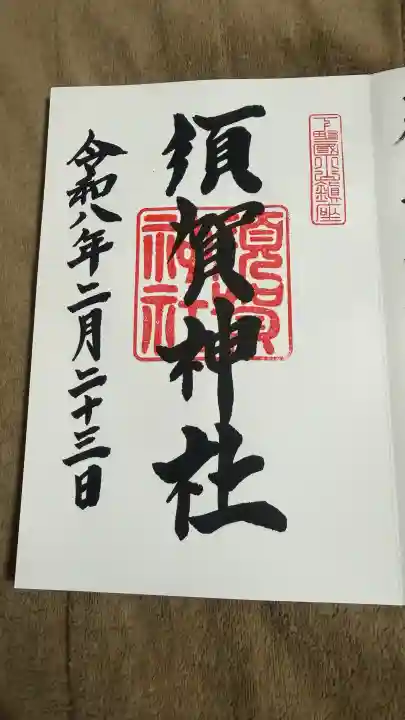 下野國小山鎮座
須賀神社
須賀神社
令和八年二月二十三日